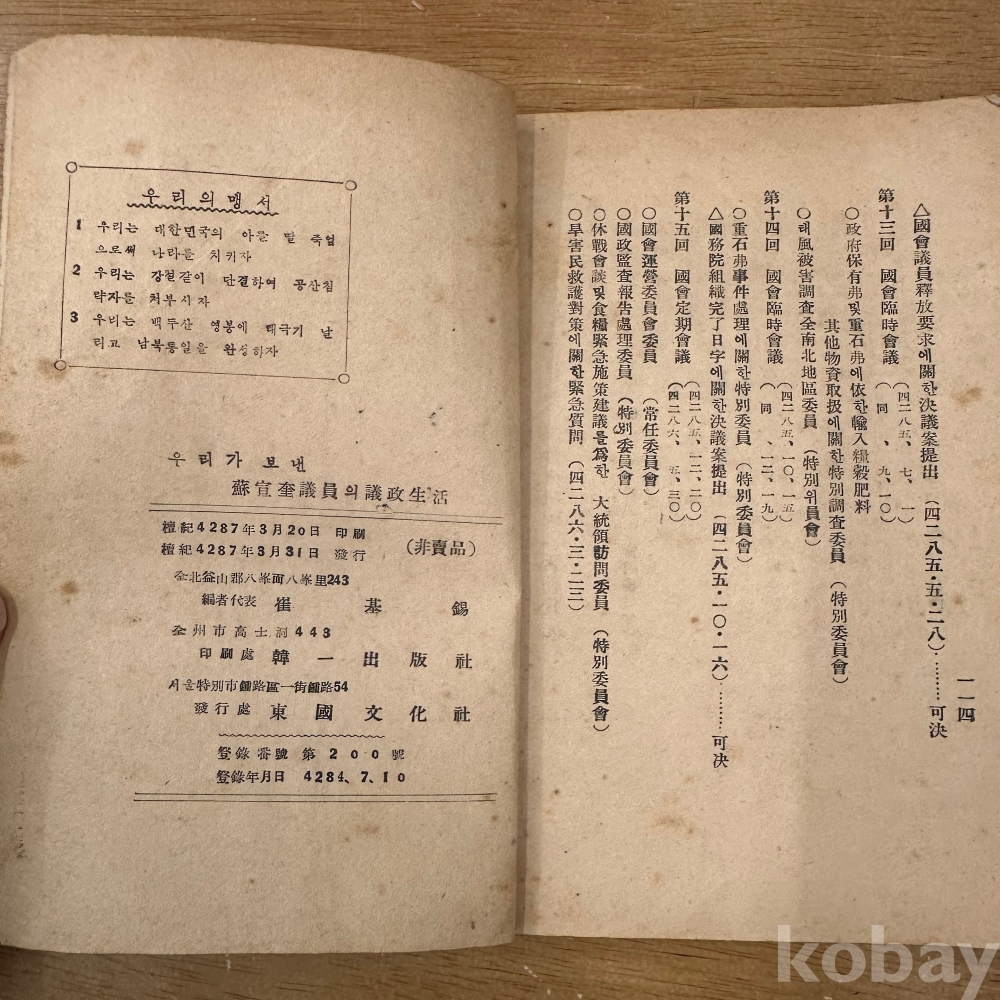 우리의맹서
1 우리는 대한민국의 아들 딸 죽엄
으로써 나라를 지키자
2 우리는 강철같이 단결하여 공산침
략자를 처부시자
3 우리는 백두산 영봉에 태극기 날
리고 남북통일을 완성하자
우리가 보낸
蘇宣奎議員의議政生活
檀紀4287年3月20日 印刷
檀紀4287年3月31日 發行
(非賣品)
全北益山郡八峯面八峯里243
編者代表 崔基錫
全州市高士洞443
印刷處 韓一出版社
서울特別市鍾路區一街鍾路54
發行處 東國文化社
登錄番號 第200號
登錄年月日 4284、7、10
一一四
△國會議員釋放要求에關한決議案提出 (四二八五・五・二八)………可決
第十三回 國會臨時會議 (四二八五、七、一
同 、九、一〇)
○政府保有弗및重石弗에依한輸入糧穀肥料
其他物資取扱에關한特別調查委員 (特別委員會)
○태風被害調査全南北地區委員 (特別위員會)
第十四回 國會臨時會議 (四二八五、一〇、一五
同 、一二、一九)
○重石弗事件處理에關한特別委員 (特別委員會)
△國務院組織完了日字에關한決議案提出 (四二八五・一〇・一六)………可決
第十五回 國會定期會議 (四二八五、一二、二〇
四二八六、五、三〇)
○國會運營委員會委員 (常任委員會)
○國政監査報告處理委員 (特別委員會)
○休戰會談및食糧緊急施策建議를爲한 大統領訪問委員 (特別委員會)
○旱害民救護對策에關한緊急質問 (四二八六・三・二三)
kobay